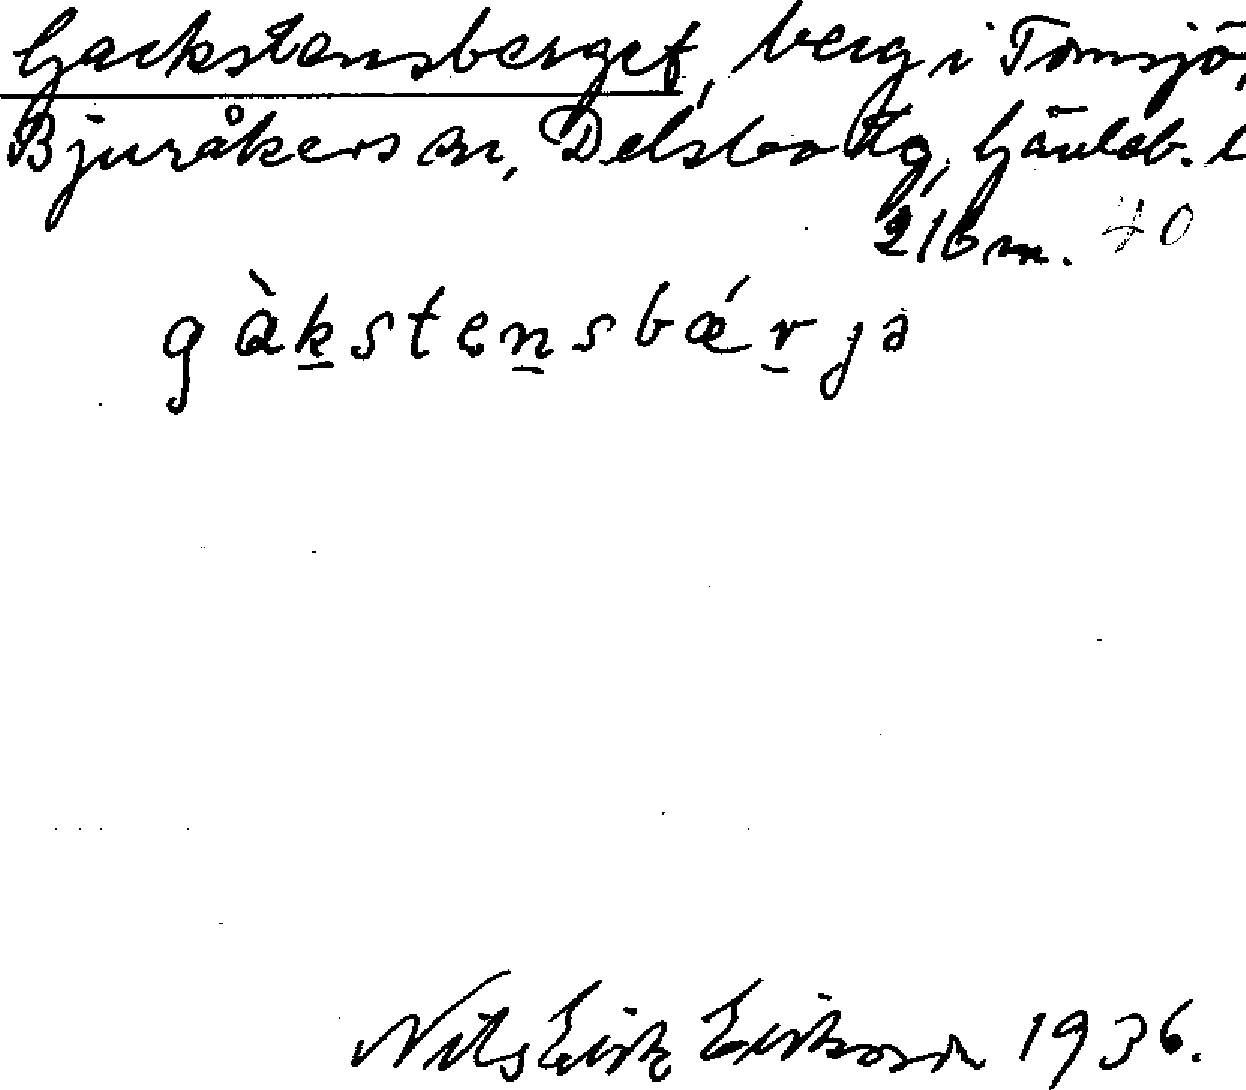 Gackstensberget, berg i Tomsjö,
Bjuråkers sn, Delsbo tg, Gävleb. l
216 m. 40
gàkstensbǽrjə
Nils Erik Erikson 1936.